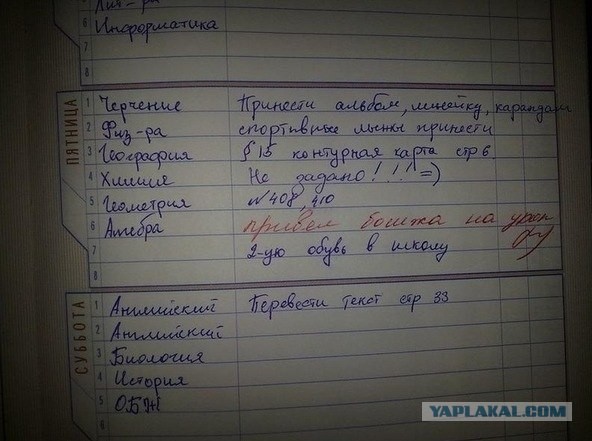 Лит-ра
6 Информатика
7
8
ПЯТНИЦА
1 Черчение Принести альбом, линейку, карандаш
2 Физ-ра спортивные лыжы принести
3 География § 15 контурная карта стр 6.
4 Химия Не задано! !!! =)
5 Геометрия №408, 410
6 Алгебра привел бомжа на урок
7 2-ую обувь в школу
8
СУББОТА
1 Английский Перевести текст стр 33
2 Английский
3 Биология
4 История
5 ОБЖ
6
YAPLAKAL.COM